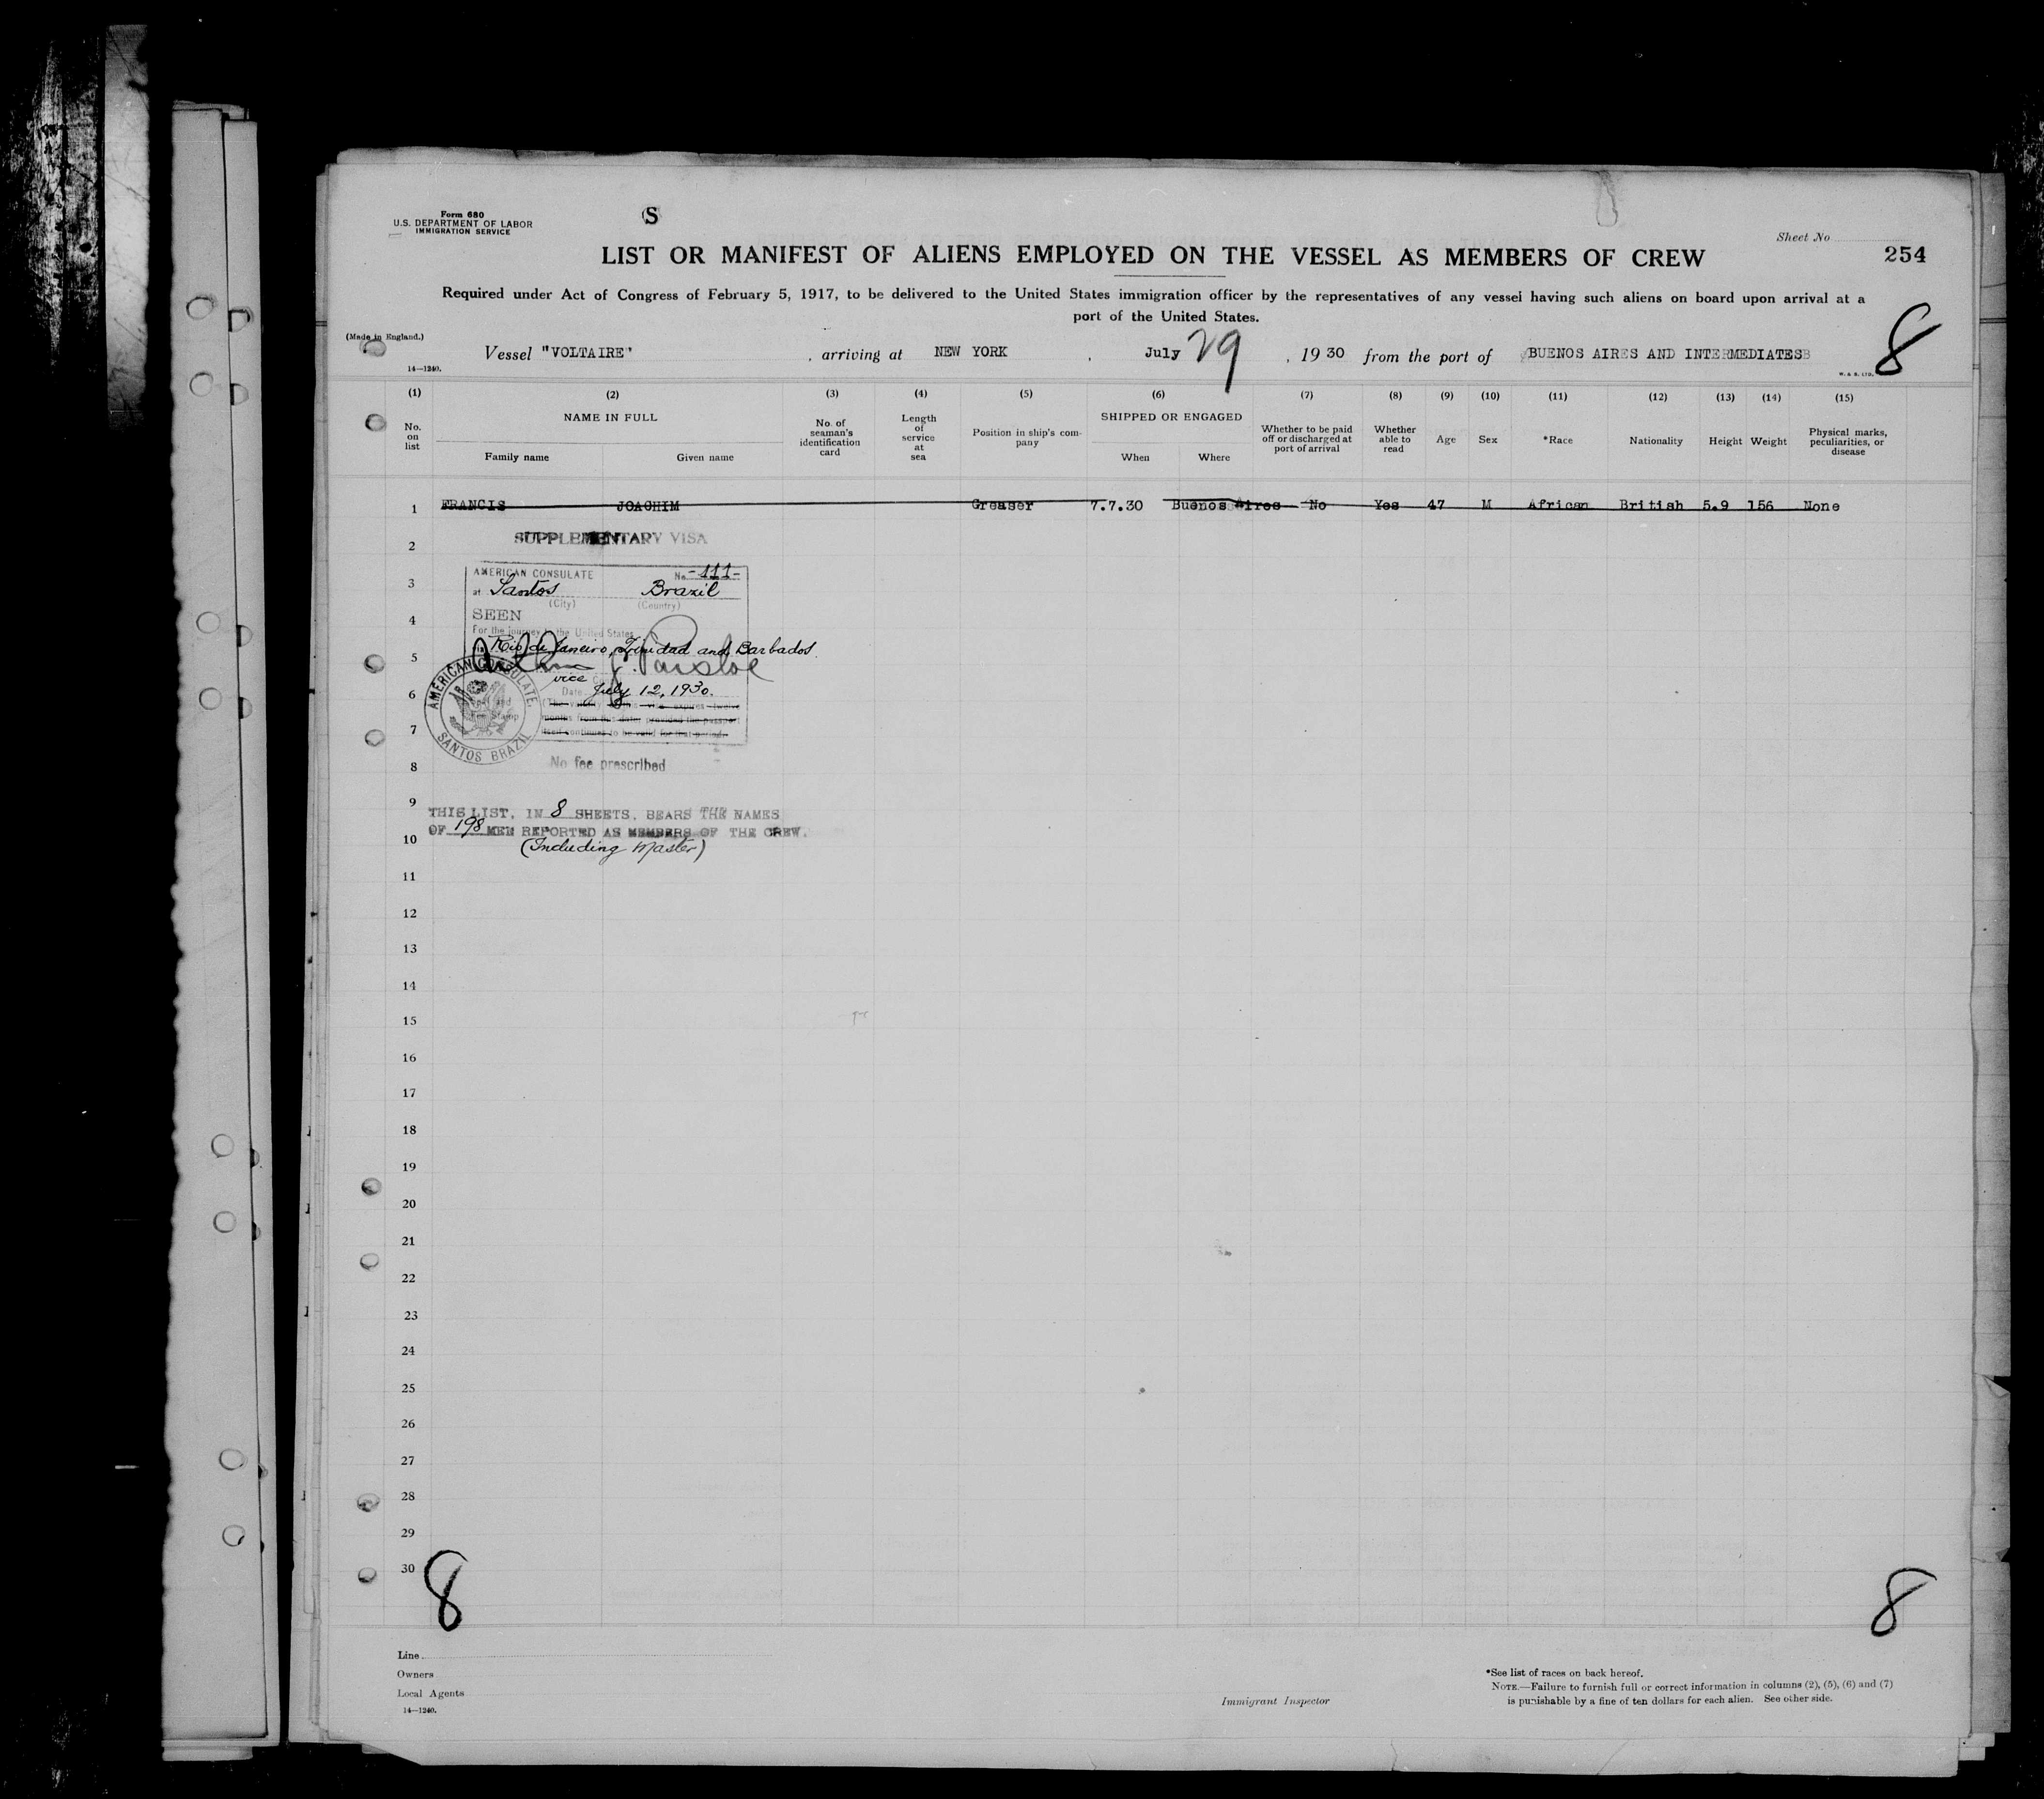 Form 680
U.S. DEPARTMENT OF LABOR
IMMIGRATION SERVICE
S
Sheet No
LIST OR MANIFEST OF ALIENS EMPLOYED ON THE VESSEL AS MEMBERS OF CREW
254
Required under Act of Congress of February 5, 1917, to be delivered to the United States immigration officer by the representatives of any vessel having such aliens on board upon arrival at a
port of the United States.
8
(Made in England.)
Vessel "VOLTAIRE", arriving at NEW YORK, July 29, 1930 from the port of BUENOS AIRES AND INTERMEDIATES
14—1240.
W. & S. LTD.
(1) (2) (3) (4) (5) (6) (7) (8) (9) (10) (11) (12) (13) (14) (15)
No. on list
NAME IN FULL
Family name Given name
No. of seaman's identification card
Length of service at sea
Position in ship's com-pany
SHIPPED OR ENGAGED
When Where
Whether to be paid off or discharged at port of arrival
Whether able to read
Age
Sex
*Race
Nationality
Height
Weight
Physical marks, peculiarities, or disease
1 FRANCIS JOACHIM Greaser 7.7.30 Buenos Aires No Yes 47 M African British 5.9 156 None
2
SUPPLEMENTARY VISA
AMERICAN CONSULATE No. -111-
3
at Santos Brazil
(City) (Country)
4
SEEN
For the journey to the United States
Rio de Janeiro, Trinidad and Barbados.
5
vice
6
Date July 12, 1930.
AMERICAN CONSULATE,
SANTOS BRAZIL
(The validity of this visa expires twelve
months from this date, provided the passport
7
used continues to be valid for that period.
8
No fee prescribed
9
THIS LIST, IN 8 SHEETS, BEARS THE NAMES
OF 198 MEN REPORTED AS MEMBERS OF THE CREW.
10
(Including Master)
11
12
13
14
15
16
17
18
19
20
21
22
23
24
25
26
27
28
29
30
8
8
Line
Owners
Local Agents
14—1240.
Immigrant Inspector
*See list of races on back hereof.
NOTE.—Failure to furnish full or correct information in columns (2), (5), (6) and (7)
is punishable by a fine of ten dollars for each alien. See other side.